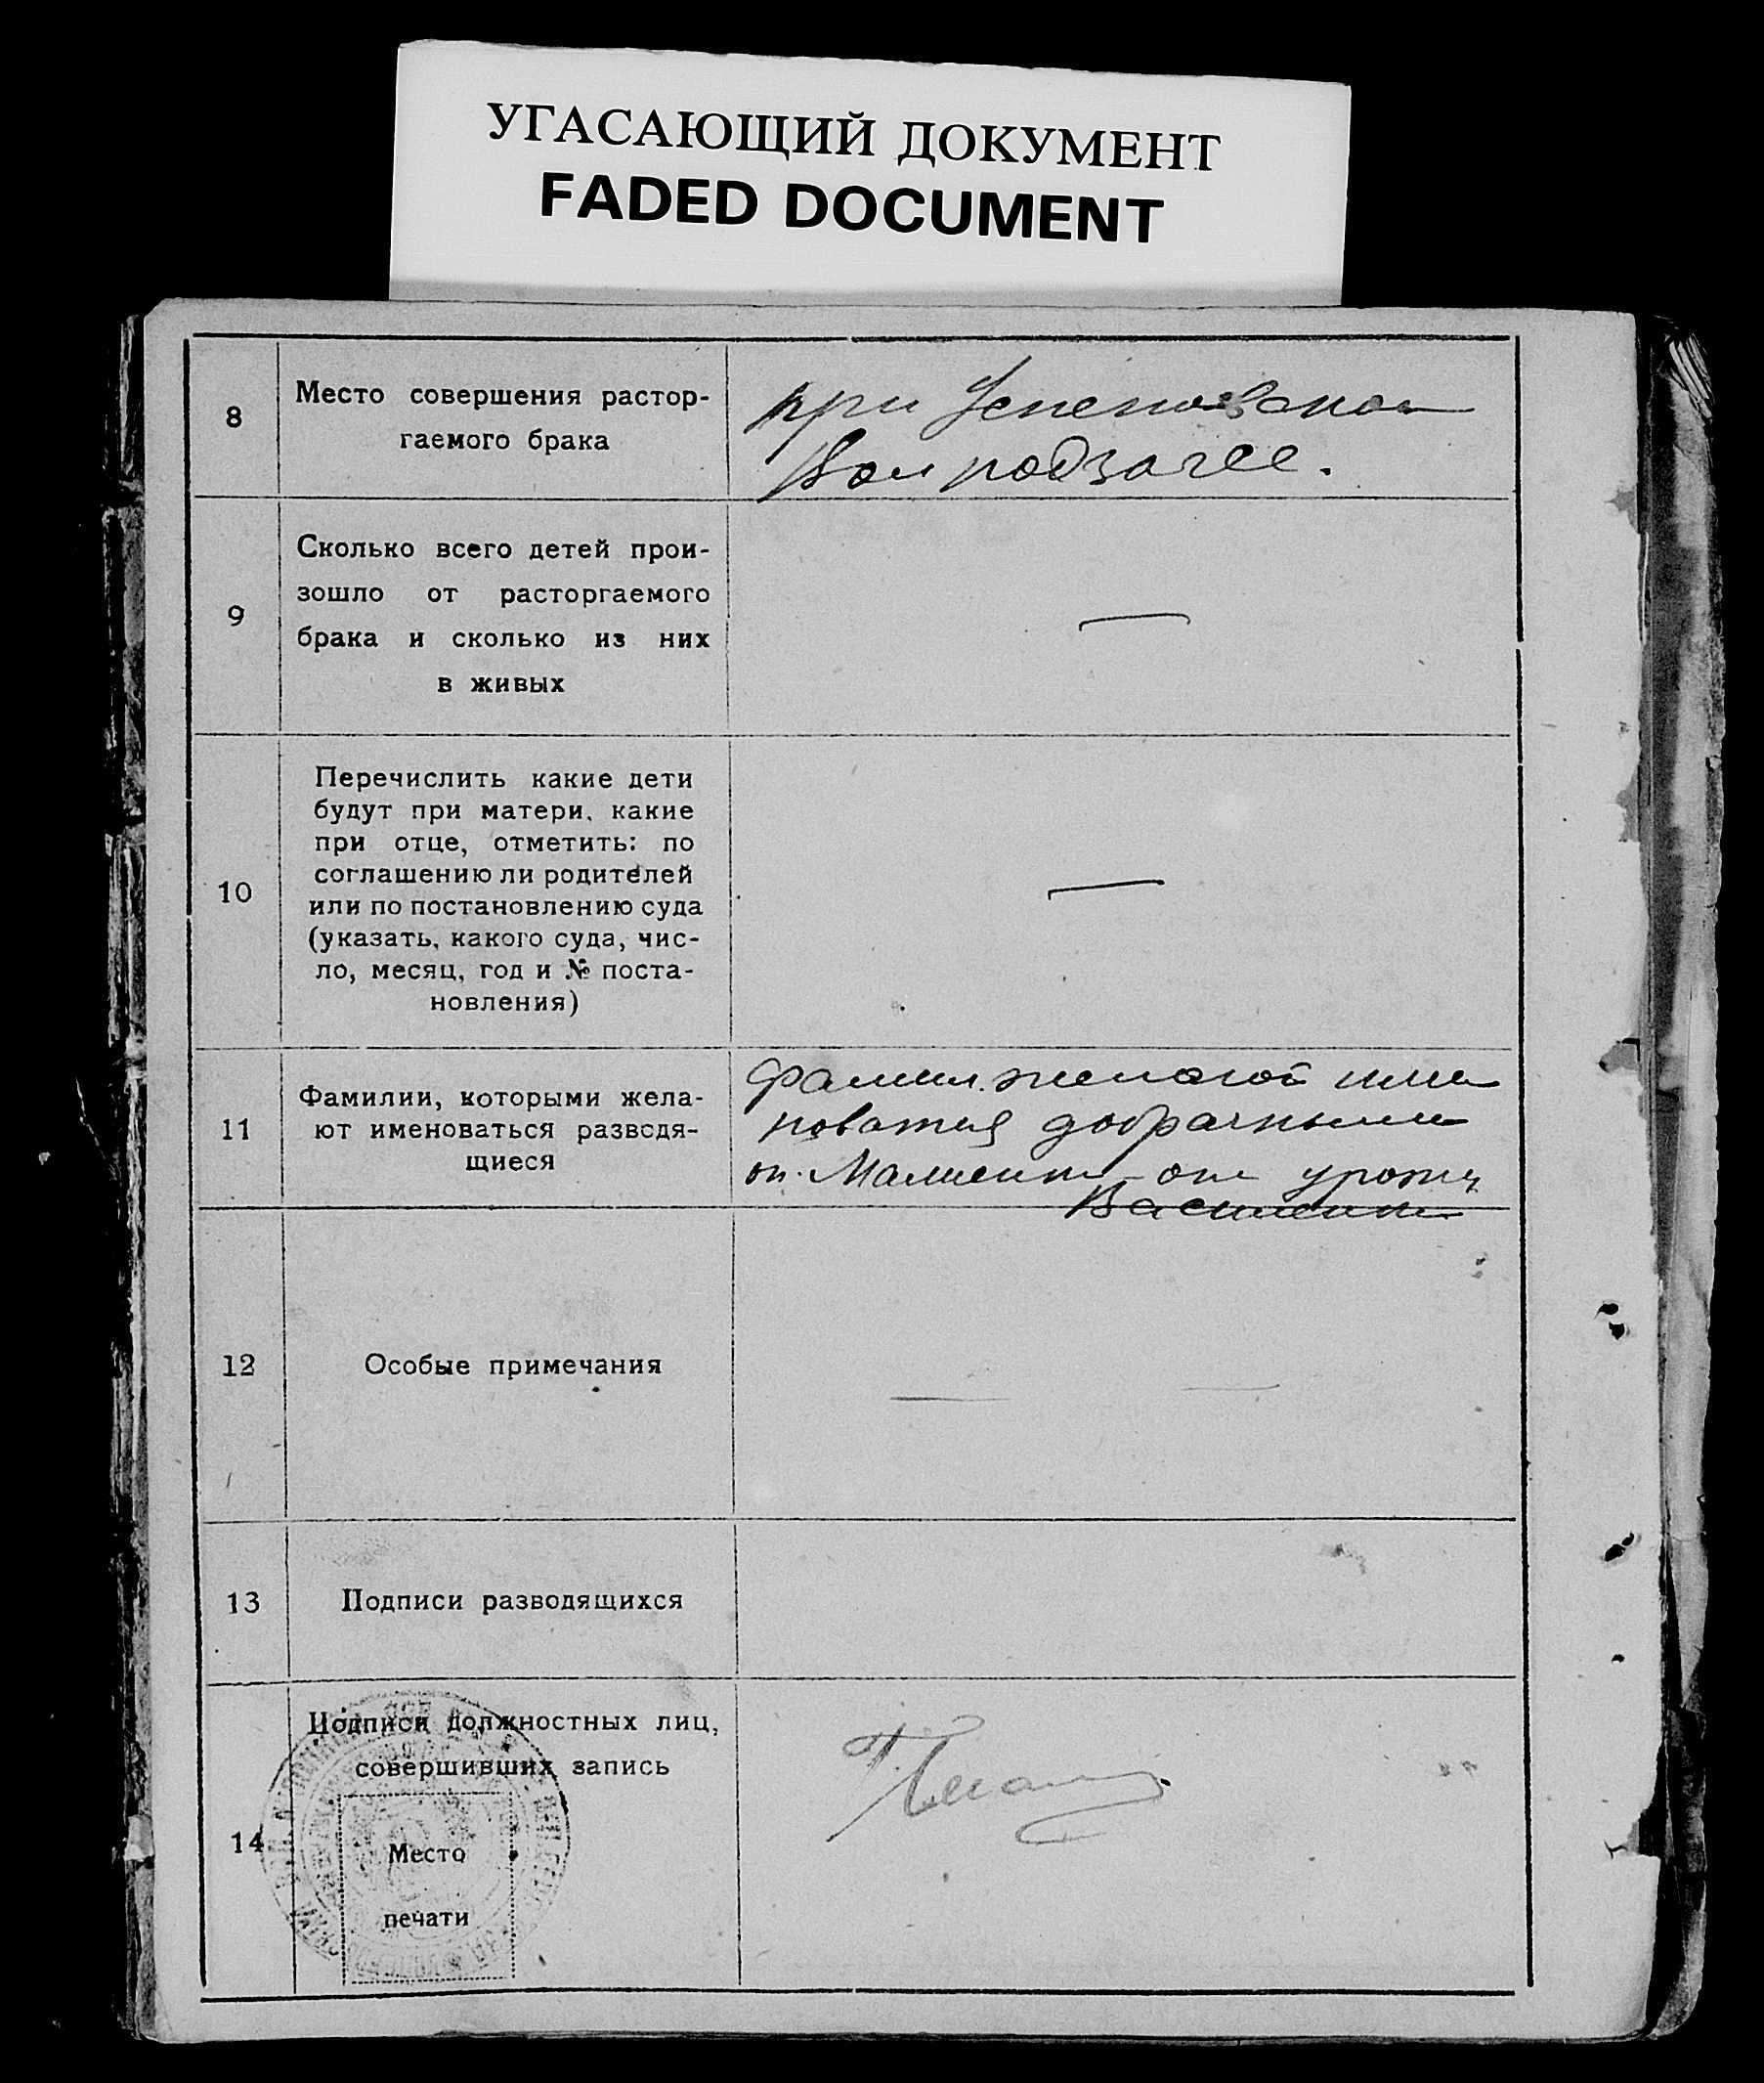 УГАСАЮЩИЙ ДОКУМЕНТ
FADED DOCUMENT
8
Место совершения растор-
гаемого брака
при
подзагсе.
9
Сколько всего детей прои-
зошло от расторгаемого
брака и сколько из них
в живых
—
10
Перечислить какие дети
будут при матери, какие
при отце, отметить: по
соглашению ли родителей
или по постановлению суда
(указать, какого суда, чис-
ло, месяц, год и № поста-
новления)
—
11
Фамилии, которыми жела-
ют именоваться разводя-
щиеся
добрачными
12
Особые примечания
— —
13
Подписи разводящихся
14
Подписи должностных лиц,
совершивших запись
Место
печати